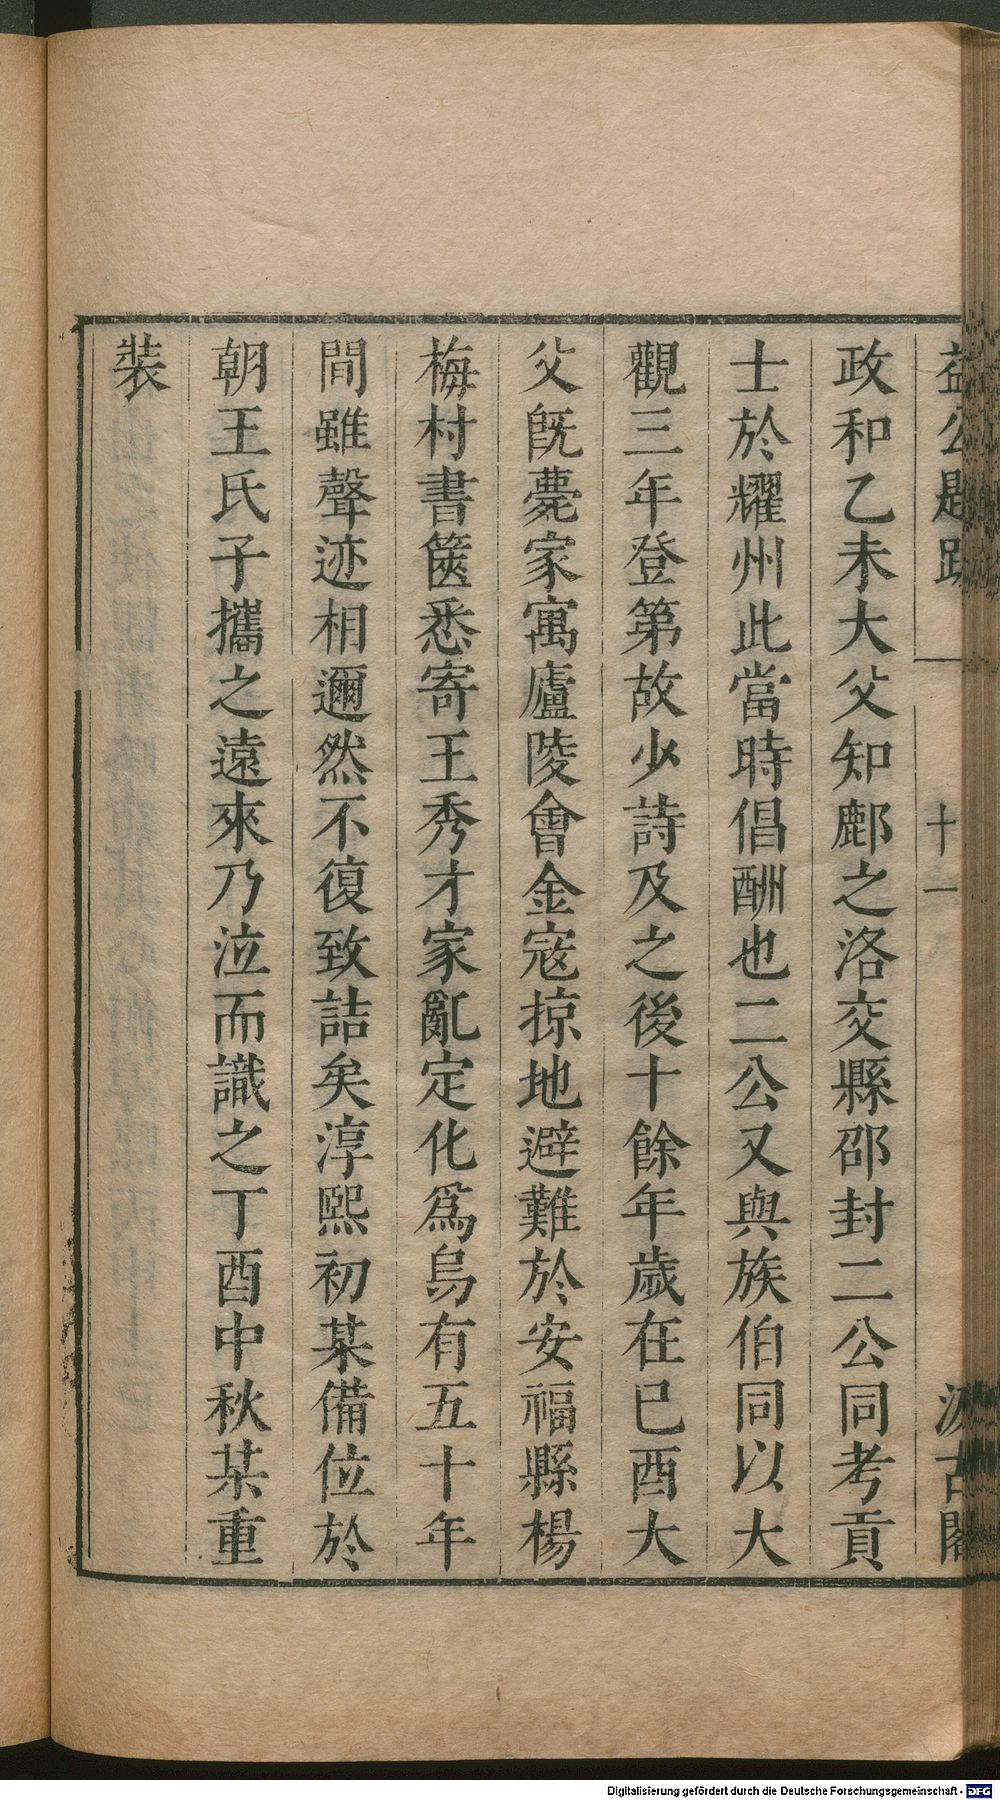 益公題跋 十一 汲古閣
政和乙未大父知鄜之洛交縣邵封二公同考貢
士於耀州此當時倡酬也二公又與族伯同以大
觀三年登第故少詩及之後十餘年歲在巳酉大
父旣薨家寓廬陵會金寇掠地避難於安福縣楊
梅村書篋悉寄王秀才家亂定化爲烏有五十年
間雖聲迹相邇然不復致詰矣淳熙初某備位於
朝王氏子攜之遠來乃泣而識之丁酉中秋某重
裝
Digitalisierung gefördert durch die Deutsche Forschungsgemeinschaft - DFG